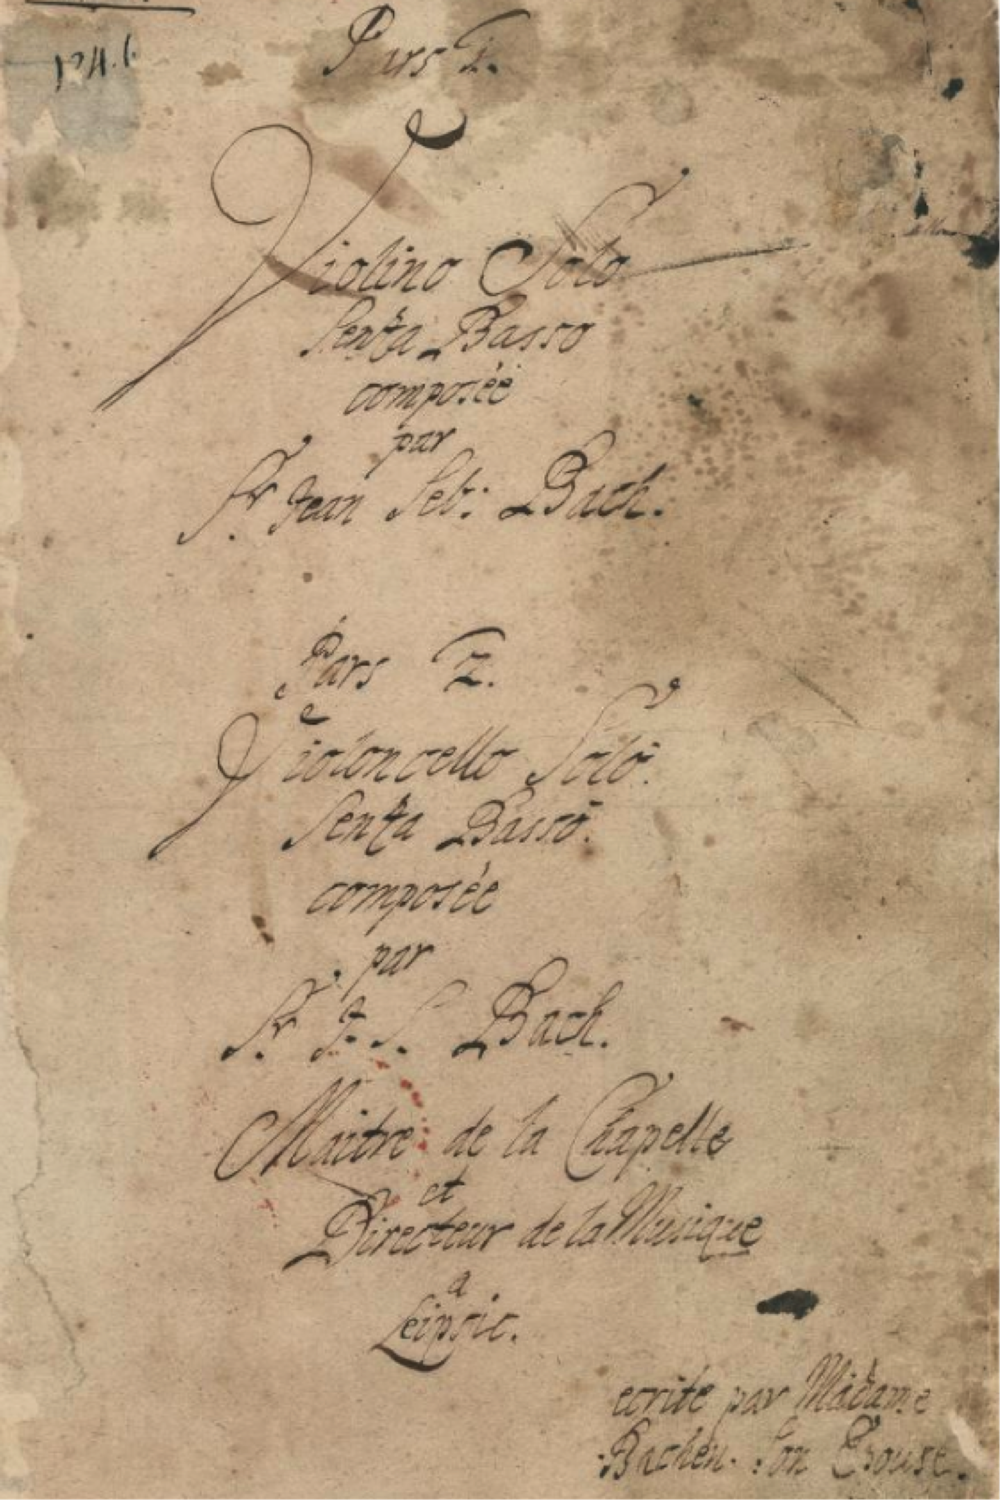 Pars 1.
Violino Solo
Senza Basso
composée
par
Sr. Jean Seb: Bach.
Pars 2.
Violoncello Solo.
Senza Basso.
composée
par
Sr. J. S. Bach.
Maitre de la Chapelle
et
Directeur de la Musique
a
Leipsic.
ecrite par Madame
Bachen. Son Epouse.